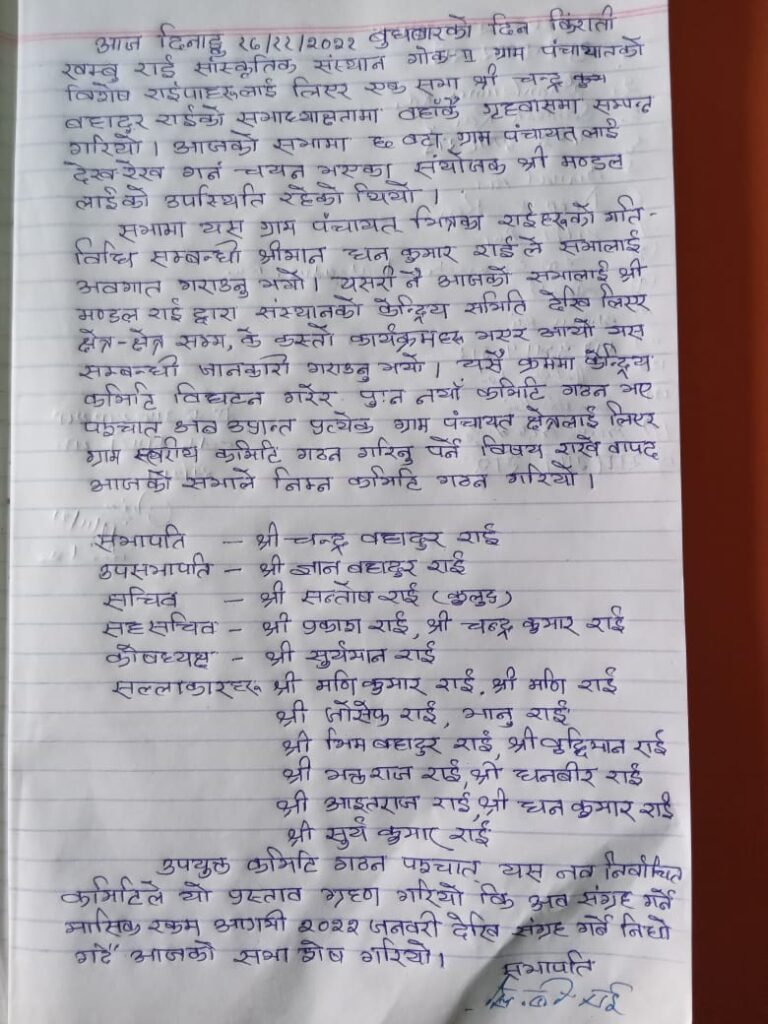 आज दिनाङ्क १६/११/२०२२ बुधबारको दिन किराती
खम्बु राई सांस्कृतिक संस्थान गोक-II ग्राम पंचायातको
विशेष राईपाहरूलाई लिएर एक सभा श्री चन्द्र
बहादुर राईको सभाध्यक्षतामा वहाँकै गृहवासमा सम्पन्न
गरियो। आजको सभामा ६ वटा ग्राम पंचायत् लाई
देख-रेख गर्न चयन भएका संयोजक श्री मण्डल
राईको उपस्थिति रहेको थियो।
सभामा यस ग्राम पंचायत् भित्रका राईहरूको गति-
विधि सम्बन्धी श्रीमान धन कुमार राई ले सभालाई
अवगत गराउनु भयो। यसरी नै आजको सभालाई श्री
मण्डल राई द्वारा संस्थानको केन्द्रिय समिति देखि लिएर
क्षेत्र-क्षेत्र सम्म, के कस्तो कार्यक्रमहरू गरेर आयो यस
सम्बन्धी जानकारी गराउनु भयो। यसै क्रममा केन्द्रिय
कमिटि विघटन गरेर पुःन नयाँ कमिटि गठन भए
पश्चात अब उप्रान्त प्रत्येक ग्राम पंचायत क्षेत्रलाई लिएर
ग्राम स्तरीय कमिटि गठन गरिनु पर्ने विषय राखे वापद
आजको सभाले निम्न कमिटि गठन गरियो।
सभापति - श्री चन्द्र बहादुर राई
उपसभापति - श्री ज्ञान बहादुर राई
सचिव - श्री सन्तोष राई (कुलुङ)
सहसचिव - श्री प्रकाश राई, श्री चन्द्र कुमार राई
कोषध्यक्ष - श्री सुर्यमान राई
सल्लाकारहरू श्री मणि कुमार राई, श्री मणि राई
श्री जोसेफ राई, भानु राई
श्री भिम बहादुर राई, श्री बुद्धिमान राई
श्री भक्तराज राई, श्री धनबीर राई
श्री आइतराज राई, श्री धन कुमार राई
श्री सुर्य कुमार राई
उपयुक्त कमिटि गठन पश्चात् यस नव निर्वाचित
कमिटिले यो प्रस्ताव ग्रहण गरियो कि अब संग्रह गर्ने
मासिक रकम आगमी २०२२ जनवरी देखि संग्रह गर्ने निधो
गर्दै आजको सभा शेष गरियो।
सभापति
राई